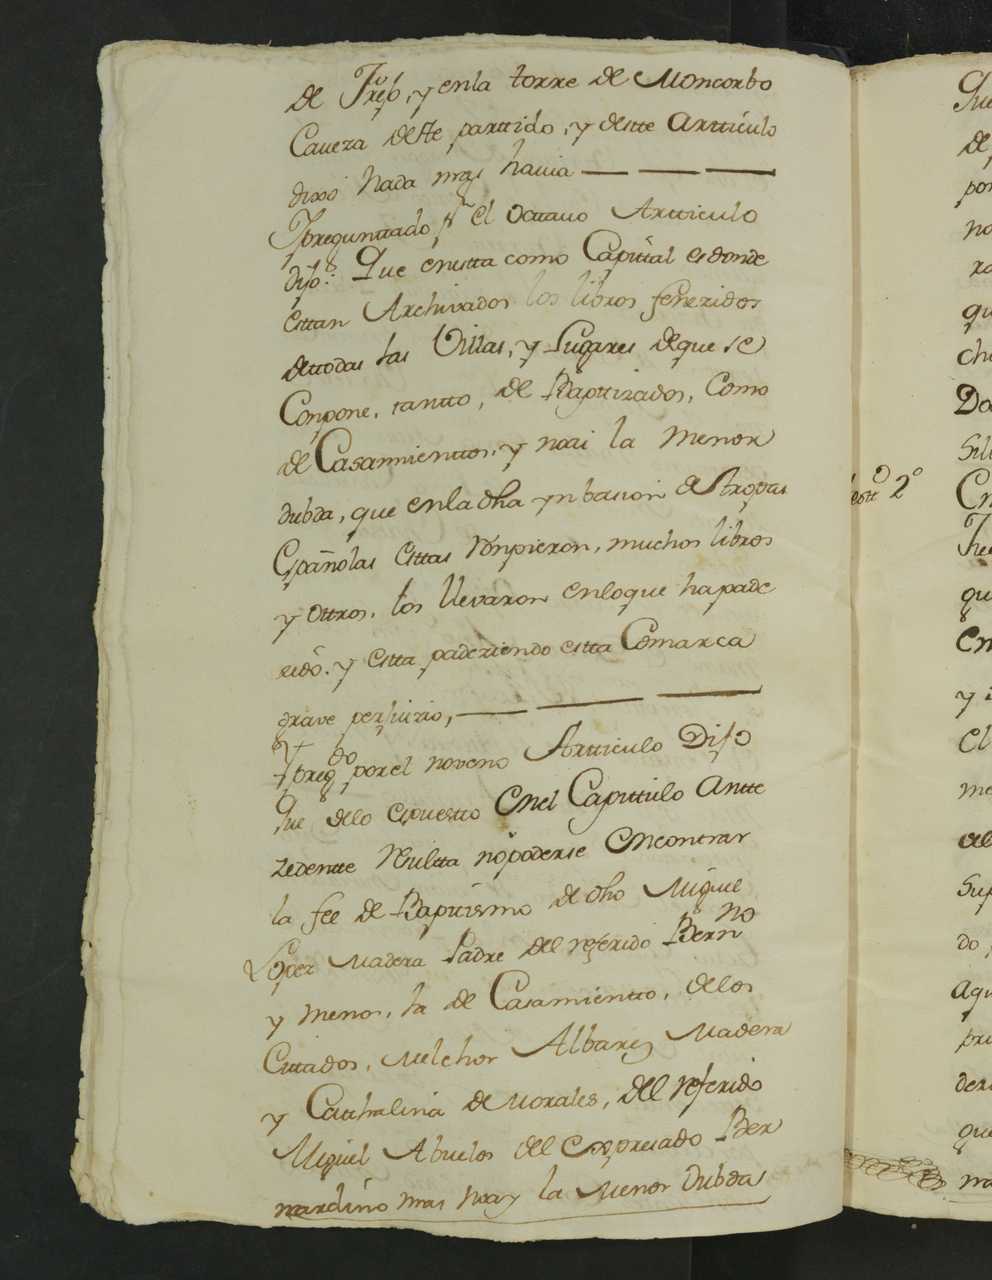 de Frexo, y en la torre de Moncorbo
Caveza deste parttido, y destte Artticulo
dixo Nada mas havia
Ypregunttado pr el Octtavo Artticulo
dijo: Que en estta como Capittal es donde
esttan Archivados los libros feneridos
dettodas las Villas, y Lugares deque se
Conpone, tantto, de Bapttizados, Como
de Casamienttos, y no ai la menor
dubda, que enla dha ynbasion de tropas
Españolas esttas Ronpieron, muchos libros
y ottros, los llevaron enloque ha pade
zido, y estta padeziendo estta Comarca
grave perjuizio,
Ypregdo por el noveno Artticulo Dijo
Que delo espuestto Enel Capittulo Antte
zedentte Resultta no poderse Encontrar
la fee de Bapttismo de dho Miguel
Lopez Madera Padre del referido Bernno
y menos, la de Casamientto, delos
Cittados, Melchor Albarez Madera
y Catthalina de Morales, del referido
Miguel Abuelos del Expresado Ber
nardino mas no ay la Menor Dubda
testto 2º